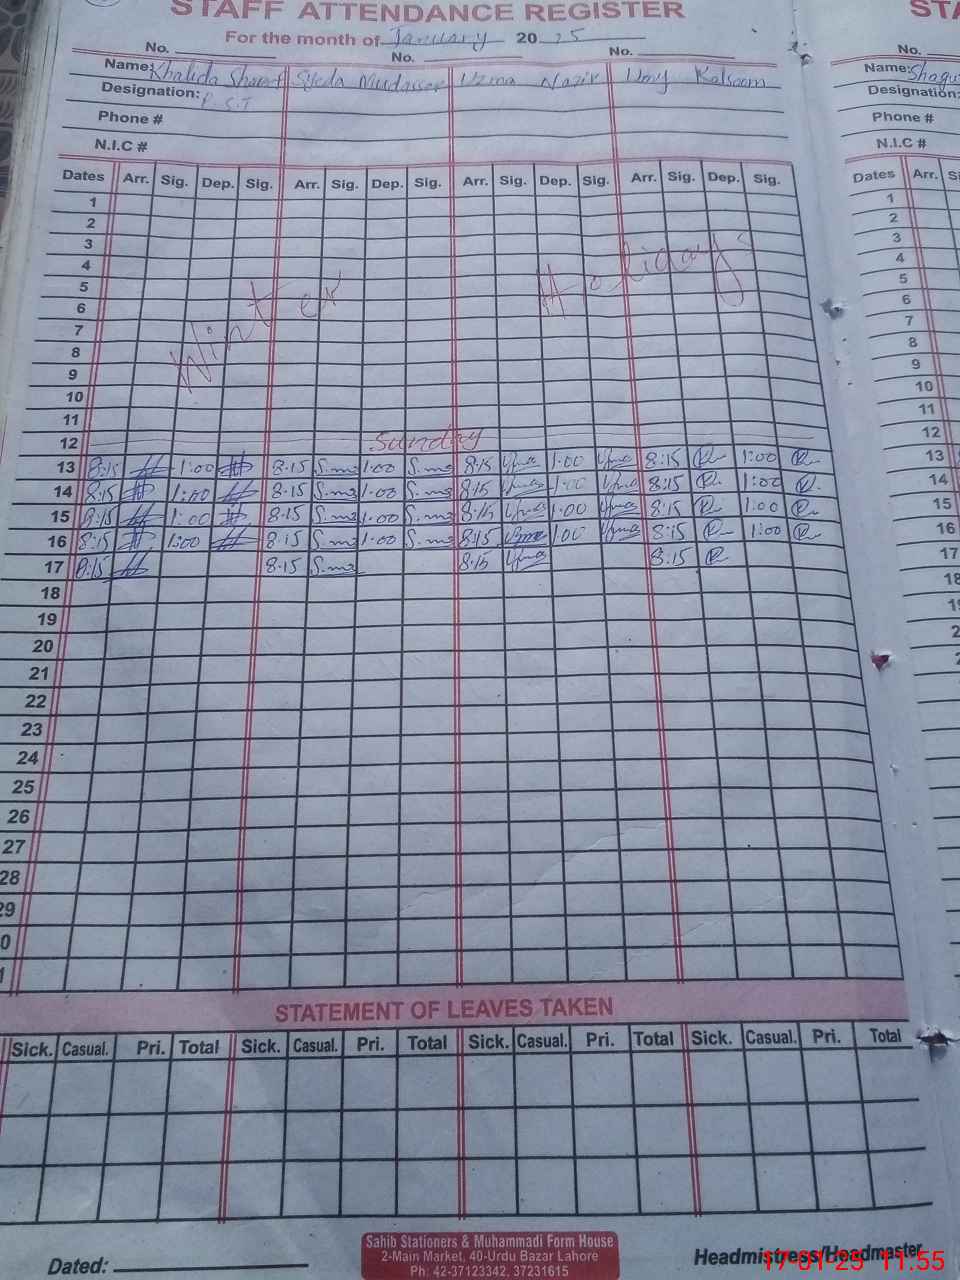 STAFF ATTENDANCE REGISTER
STA
For the month of January 20 25
No. No. No. No.
Name: Khalida Sharif Syeda Mudassar Uzma Nazir Umy Kalsoom
Name: Shagu
Designation: P.S.T
Designation:
Phone #
Phone #
N.I.C #
N.I.C #
Dates Arr. Sig. Dep. Sig. Arr. Sig. Dep. Sig. Arr. Sig. Dep. Sig. Arr. Sig. Dep. Sig.
Dates Arr. S
1 1
2 2
3 3
4 4
5 5
6 6
7 7
8 8
9 9
10 10
11 11
Winter Holidays
12 Sunday 12
13 8:15 1:00 8.15 S.ma 1.00 S.ma 8.15 Uzma 1.00 Uzma 8:15 1:00 13
14 8:15 1:00 8.15 S.ma 1.00 S.ma 8.15 Uzma 1.00 Uzma 8:15 1:00 14
15 8:15 1:00 8.15 S.ma 1.00 S.ma 8.15 Uzma 1.00 Uzma 8:15 1:00 15
16 8:15 1:00 8.15 S.ma 1.00 S.ma 8.15 Uzma 1.00 Uzma 8:15 1:00 16
17 8:15 8.15 S.ma 8.15 Uzma 8:15 17
18 18
19
20
21
22
23
24
25
26
27
28
29
0
1
STATEMENT OF LEAVES TAKEN
Sick. Casual. Pri. Total Sick. Casual. Pri. Total Sick. Casual. Pri. Total Sick. Casual. Pri. Total
Dated:
Sahib Stationers & Muhammadi Form House
2-Main Market, 40-Urdu Bazar Lahore
Ph: 42-37123342, 37231615
Headmistress/Headmaster
17-01-25 11:55